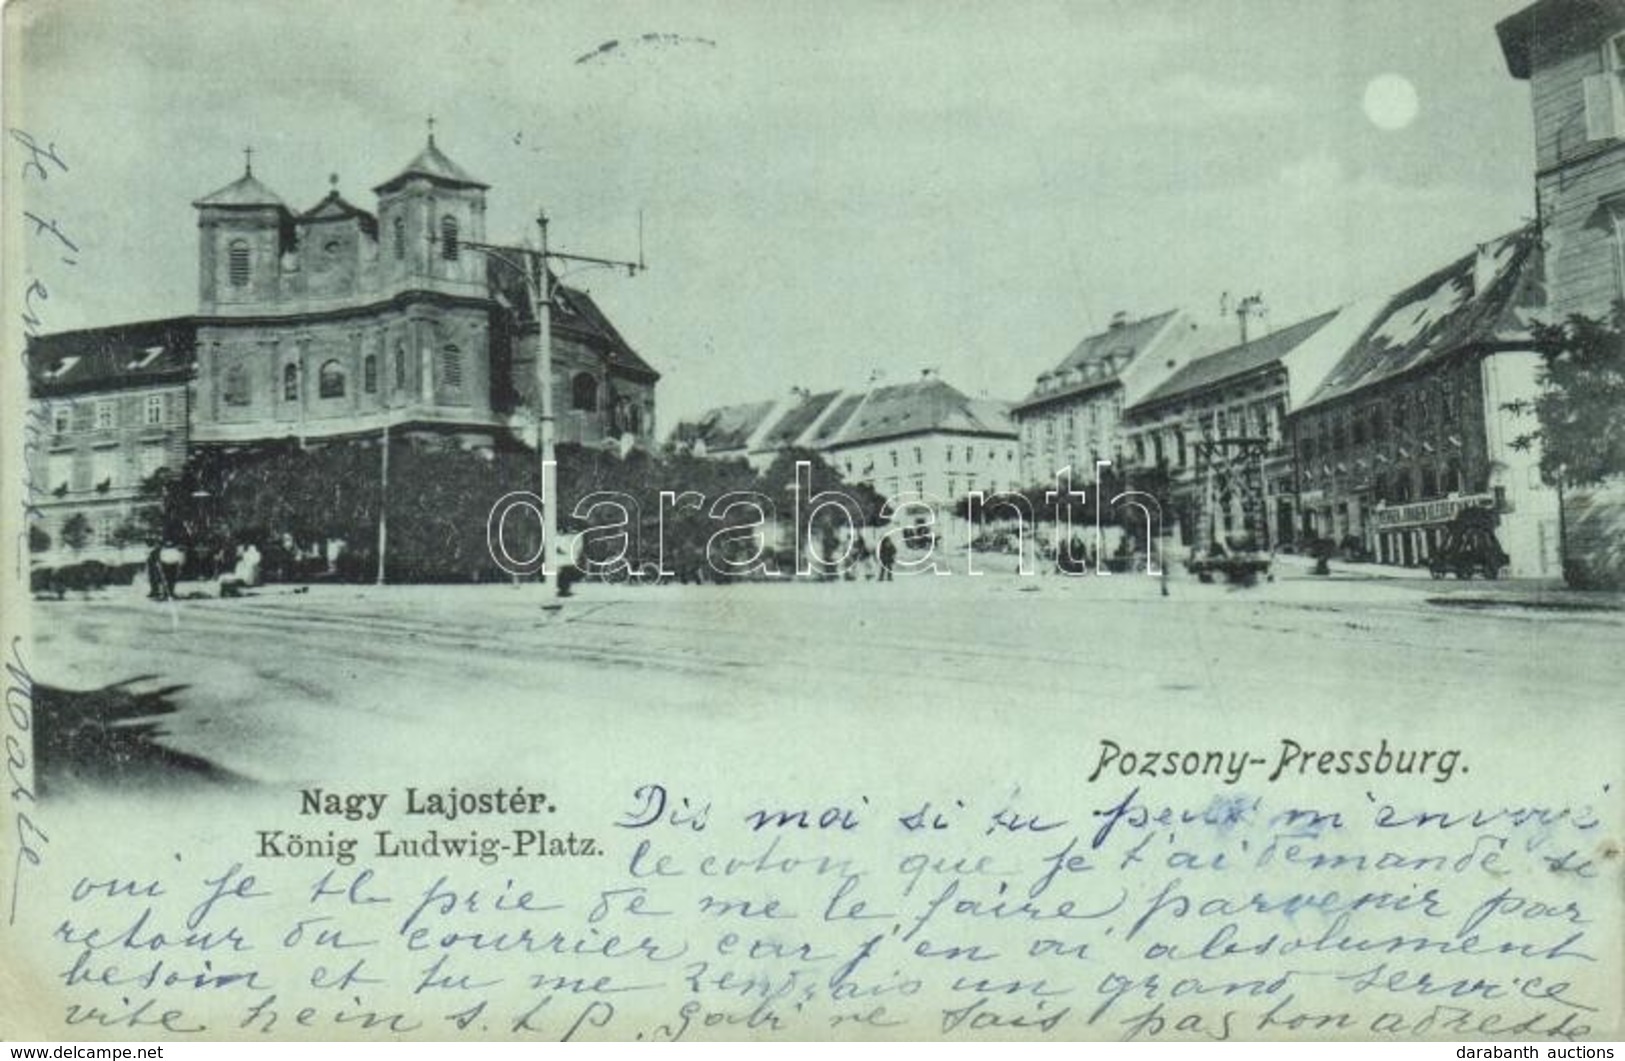 Pozsony-Pressburg.
Nagy Lajostér.
König Ludwig-Platz.
Dis moi si tu peux m'envoyé
le coton que je t'ai demandé si
oui je te prie de me le faire parvenir par
retour du courrier car j'en ai absolument
besoin et tu me rendrais un grand service
vite hein s.t.p. Gabi ne sais pas ton adresse
Je t'emm
Marle
darabanth
darabanth auctions